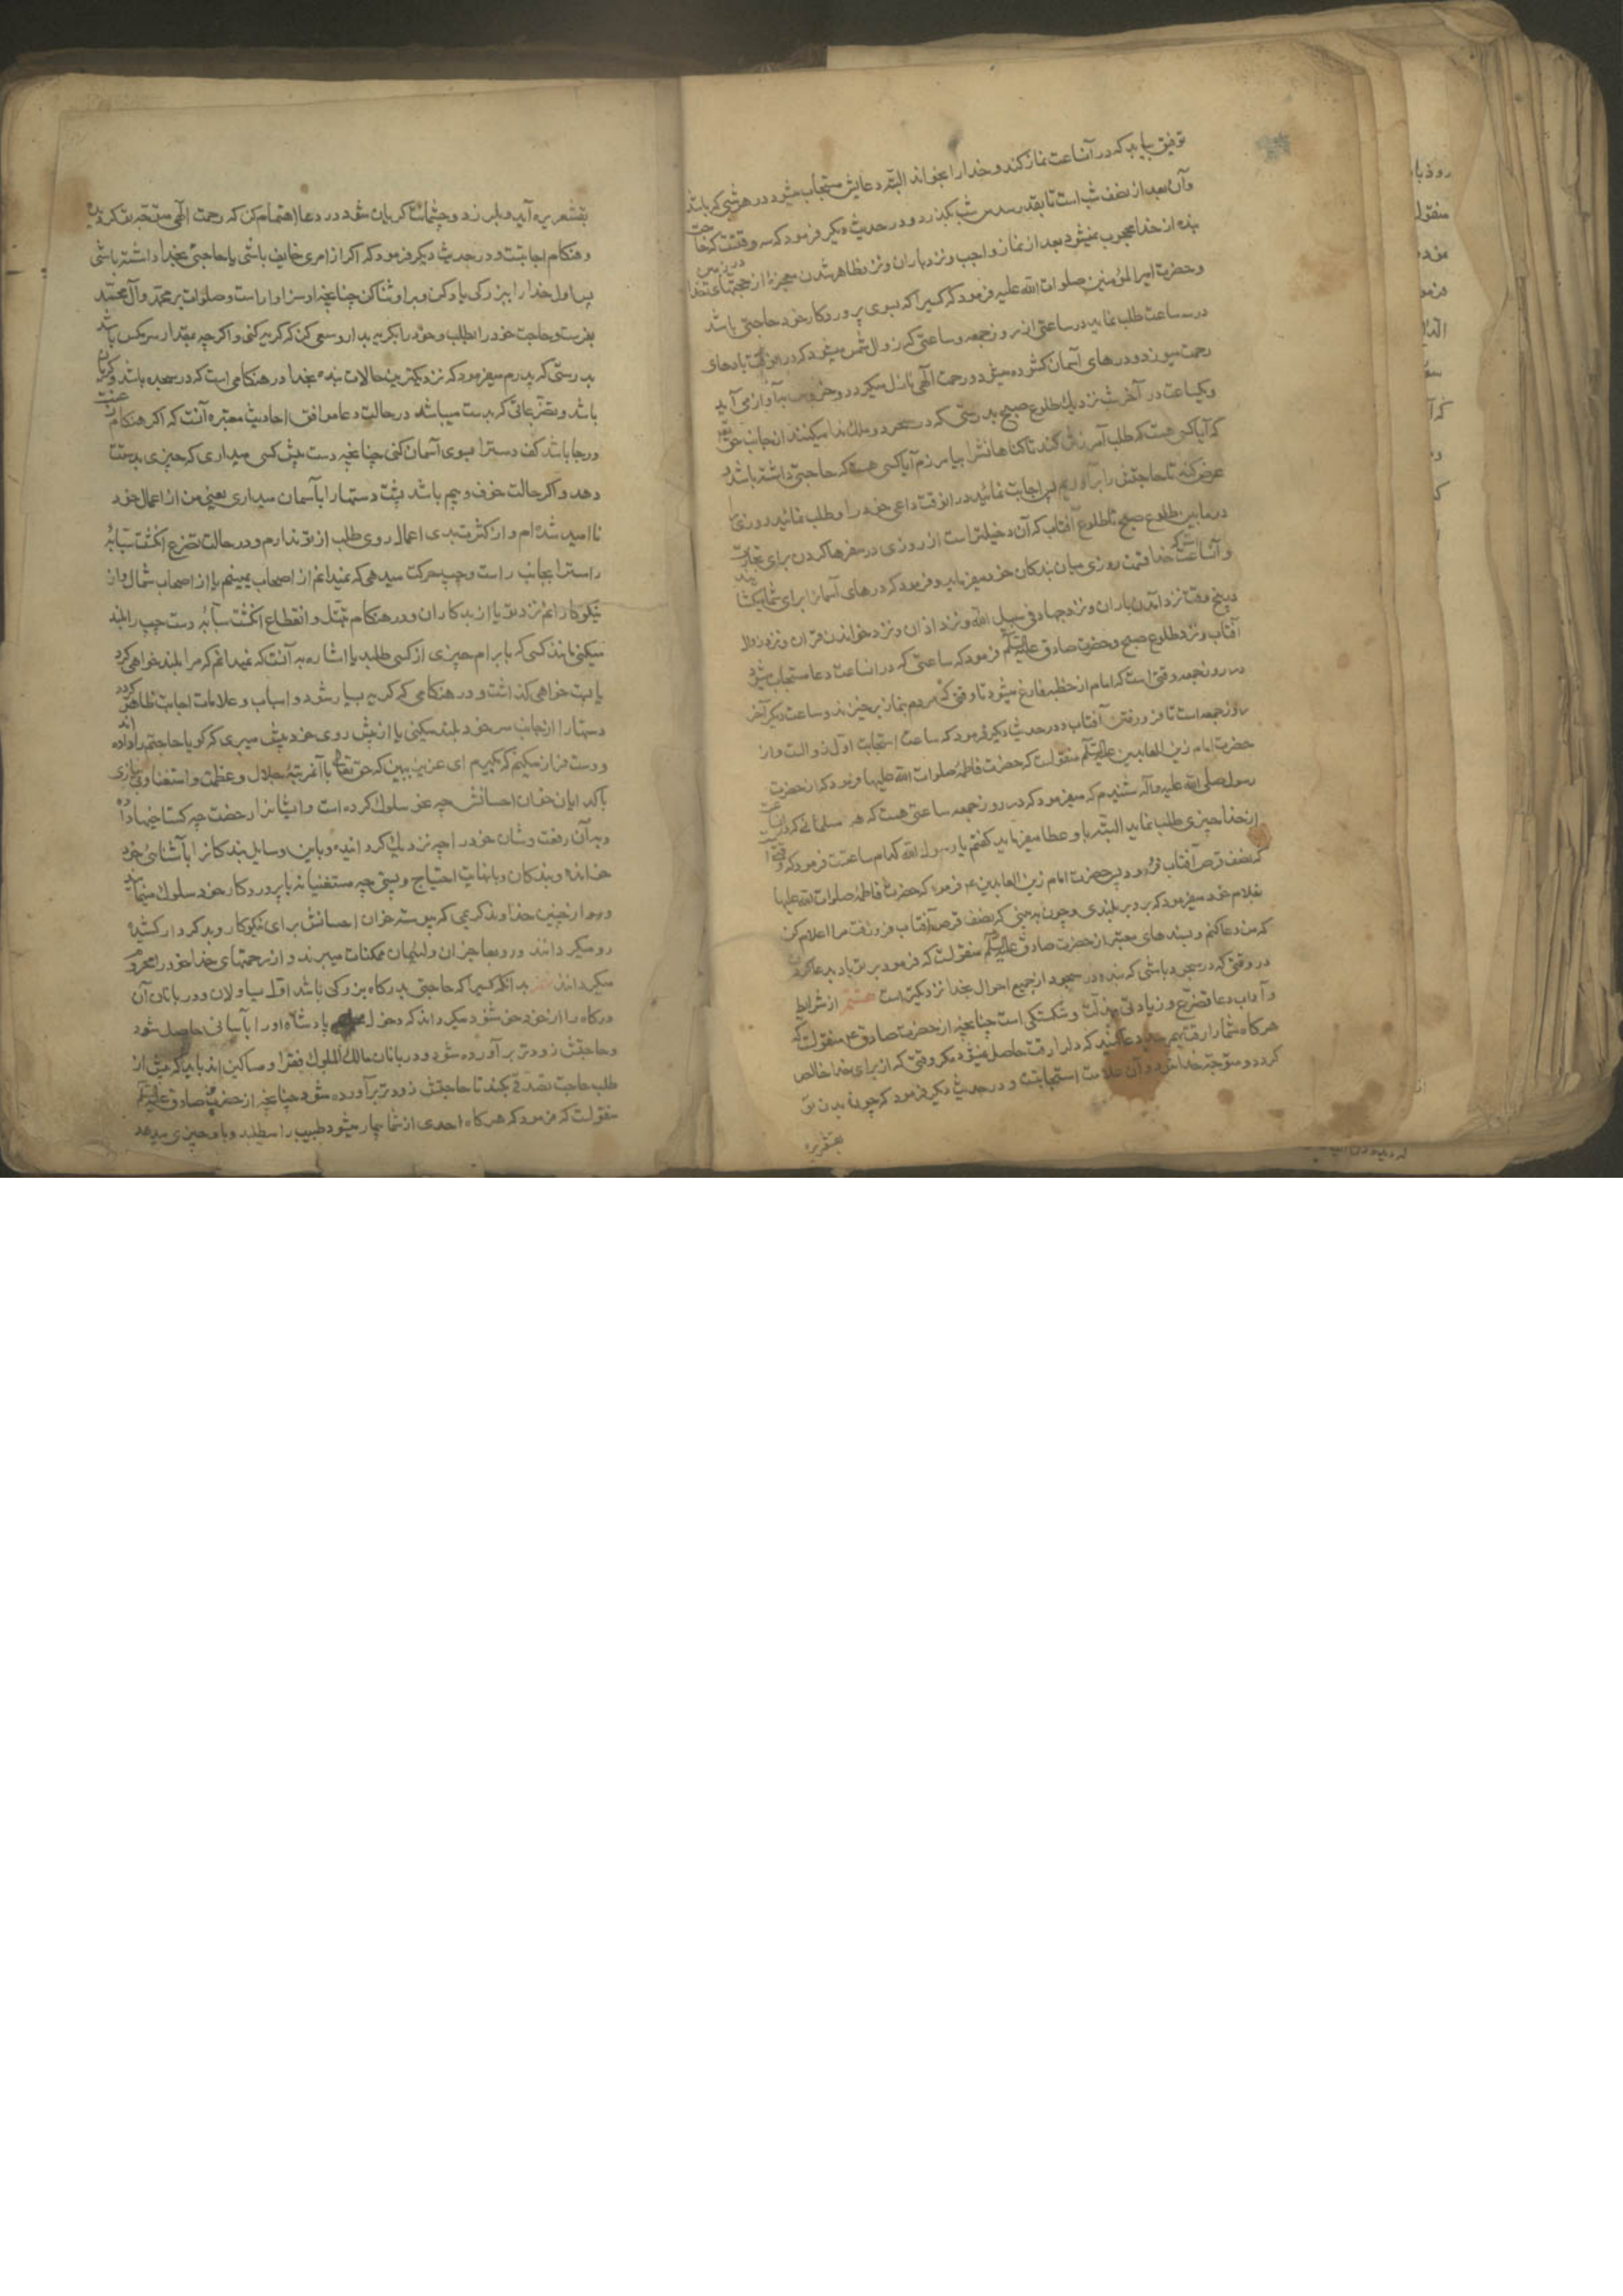 توفیق بیابد که در آنساعت نماز کند و خدا را بخواند البته دعایش مستجاب میشود در هر شبی که باشد
و آن بعد از نصف شب است تا بقدر سدس شب بگذرد و در حدیث دیگر فرمود که سه وقتست که حاجت
بنده از خدا محجوب نمیشود بعد از نماز واجب و نزد باران و نزد ظاهر شدن معجزهٔ از حجتهای خدا در زمین
و حضرت امیر المؤمنین صلوات الله علیه فرمود که کسیرا که بسوی پروردکار خود حاجتی باشد
در سه ساعت طلب نماید در ساعتی از روز جمعه و ساعتی که زوال شمس میشود که در انوقت بادهای
رحمت میوزد و درهای آسمان کشوده میشود و رحمت آلهی نازل میکردد و خروس بآواز می آید
و یکساعت در آخر شب نزدیک طلوع صبح بدرستی که در سحر دو ملک ندا میکنند از جانب حق
که آیا کسی هست که طلب آمرزش کند تا کناهانشرا بیامرزم آیا کسی هست که حاجتی داشته باشد
عرض کند تا حاجتش را برآورم پس اجابت نمائید در انوقت داعی خود را و طلب نمائید روزی
در ما بین طلوع صبح تا طلوع آفتاب که آن دخیلتر است از روزی در سفرها کردن برای تجارت
و آنساعت است که خدا قسمت روزی میان بندکان خود میفرماید و فرمود که درهای آسمان برای شما میکشاید
در پنج وقت نزد آمدن باران و نزد جهاد فی سبیل الله و نزد اذان و نزد خواندن قران و نزد زوال
آفتاب و نزد طلوع صبح و حضرت صادق علیه السلام فرمود که ساعتی که در انساعت دعا مستجاب میشود
در روز جمعه وقتی است که امام از خطبه فارغ میشود تا وقتی که مردم بنماز برخیزند و ساعت دیکر آخر
روز جمعه است تا فرو رفتن آفتاب و در حدیث دیکر فرمود که ساعت استجابت اول زوالست و از
حضرت امام زین العابدین علیه السلام منقولست که حضرت فاطمه صلوات الله علیها فرمود که از حضرت
رسول صلی الله علیه و آله شنیدم که میفرمود که در روز جمعه ساعتی هست که هر مسلمانی که در انساعت
از خدا چیزی طلب نماید البته باو عطا میفرماید کفتم یا رسول الله کدام ساعتست فرمود که وقتی است
که نصف قرص آفتاب فرو رود پس حضرت امام زین العابدین ع فرمود که حضرت فاطمه صلوات الله علیها
بغلام خود میفرمود که برو بر بلندی و چون به بینی که نصف قرص آفتاب فرو رفت مرا اعلام کن
که من دعا کنم و بسندهای معتبر از حضرت صادق علیه السلام منقولست که فرمود بر تو باد بدعا کردن
در وقتی که در سجود باشی که بنده در سجود از جمیع احوال بخدا نزدیکتر است هشتم از شرایط
و آداب دعا تضرع و زیادتی مذلت و شکستکی است چنانچه از حضرت صادق ع منقولست که
هرکاه شما را رقت بهم رسد دعا کنید که دل را رقت حاصل نمیشود مکر وقتی که از برای خدا خالص
کردد و متوجه خدا شود و آن علامت استجابتست و در حدیث دیکر فرمود که چون بدن تو
بقشعریره
بقشعریره آید و بلرزد و چشمانت کریان شود در دعا اهتمام کن که رحمت الهی متوجه تو کردیده
و هنکام اجابتست و در حدیث دیکر فرمود که اکر از امری خایف باشی یا حاجتی بخدا داشته باشی
پس اول خدا را ببزرکی یاد کن و بر او ثنا کن چنانچه او سزاوار است و صلوات بر محمد و آل محمد
بفرست و حاجت خود را بطلب و خود را بکریه بدار و سعی کن که کریه کنی و اکرچه بمقدار سر مکس باشد
بدرستی که پدرم میفرمود که نزدیکترین حالات بنده بخدا در هنکامی است که در سجده باشد و کریان
باشد و تضرعاتی که بدست میباشد در حالت دعا موافق احادیث معتبره آنست که اکر هنکام رغبت
و رجا باشد کف دست را بسوی آسمان کنی چنانچه دست پیش کسی میداری که چیزی بدستت
دهد و اکر حالت خوف و بیم باشد پشت دستها را بآسمان میداری یعنی من از اعمال خود
ناامید شده ام و از کثرت بدی اعمال روی طلب از تو ندارم و در حالت تضرع انکشت سبابه
راست را بجانب راست و چپ حرکت میدهی که نمیدانم از اصحاب یمینم یا از اصحاب شمال و از
نیکوکارانم نزد تو یا از بدکاران و در هنکام تبتل و انقطاع انکشت سبابه دست چپ را بلند
میکنی مانند کسی که بابرام چیزی از کسی طلبد یا اشاره به آنست که نمیدانم که مرا بلند خواهی کرد
یا پست خواهی کذاشت و در هنکامی که کریه بسیار شود و اسباب و علامات اجابت ظاهر کردد
دستها را از جانب سر خود بلند میکنی یا از پیش روی خود پیش میبری که کویا حاجتم را داده اند
و دست فراز میکنم که بکیرم ای عزیز ببین که حق تعالی با آنمرتبهٔ جلال و عظمت و استغنا و بی نیازی
با کدایان خوان احسانش چه نحو سلوک کرده است و ایشان را رخصت چه کستاخیها داده
و به آن رفعت و شان خود را چه نزدیک کردانیده و باین وسایل بندکان را بآشنائی خود
خوانده و بندکان و با نهایت احتیاج و پستی چه مستغنیانه با پروردکار خود سلوک مینمایند
و رو از چنین خداوند کریمی که پیوسته خوان احسانش برای نیکوکار و بدکردار کشیده
رو میکردانند و رو بعاجزان و لئیمان ممکنات میبرند و از رحمتهای خدا خود را محروم
میکردانند بدانکه کسیرا که حاجتی بدرکاه بزرکی باشد اول یساولان و دربانان آن
درکاه را از خود خوشنود میکرداند که دخول پادشاه او را بآسانی حاصل شود
و حاجتش زودتر برآورده شود و دربانان مالک الملوک فقرا و مساکین اند باید که پیش از
طلب حاجت تصدقی بکند تا حاجتش زودتر برآورده شود چنانچه از حضرت صادق علیه السلام
منقولست که فرمود که هرکاه احدی از شما بیمار میشود طبیب را میطلبد و باو چیزی میدهد